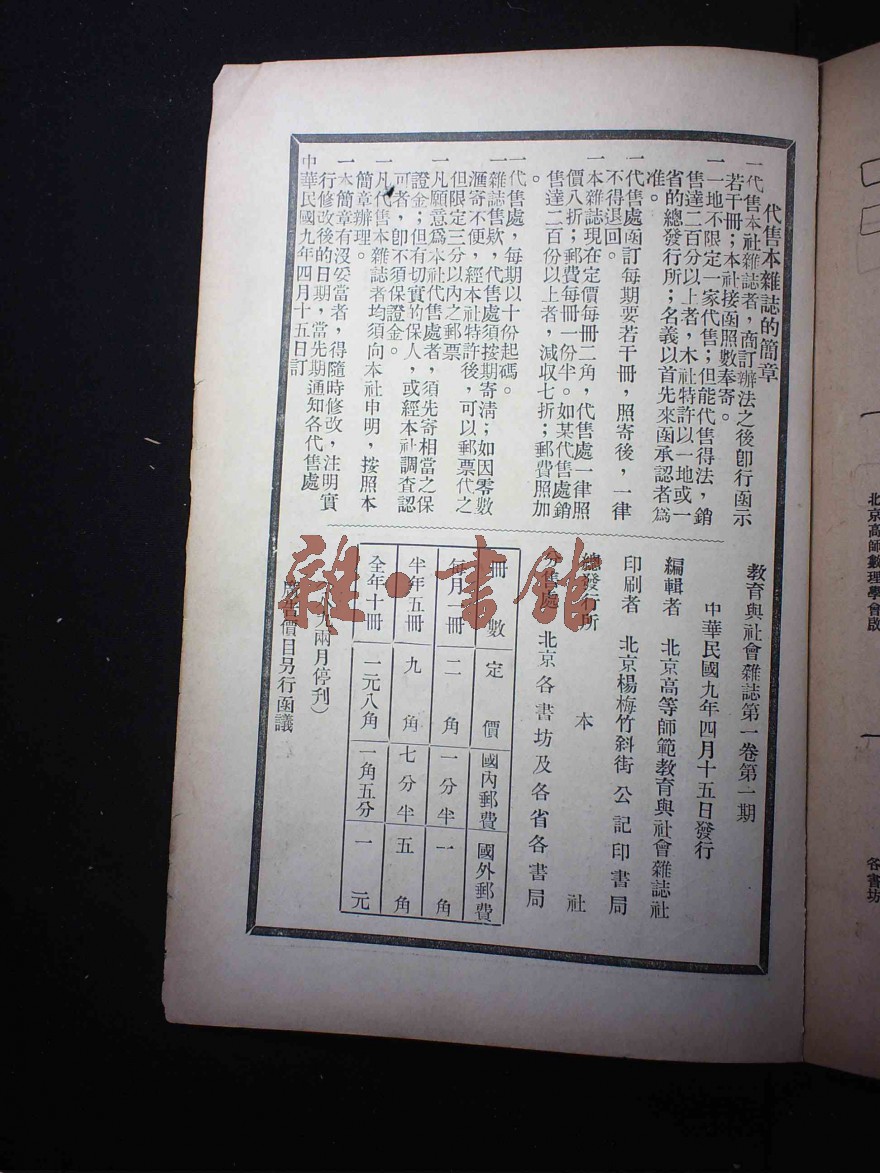 代售本雜誌的簡章
一代售本社雜誌者，商訂辦法之後卽行函示
若干冊；本社接函照數奉寄。
一一地不限定一家代售；但能代售得法，銷
售達二百分以上者，本社特許以一地或一
省的總發行所；名義以首先來函承認者爲
准。
一代售處函訂每期要若干冊，照寄後，一律
不得退回。
一本雜誌現在定價每冊二角，代售處一律照
價八折；郵費每冊一份半。如某代售處銷
售達二百份以上者，減収七折；郵費照加
。
一代售處，每期以十份起碼。
一雜誌售欵，代售處須按期寄清；如因零數
滙寄不便，經本社特許後，可以郵票代之
但限定三分以內之郵票
一凡願意爲本社代售處者，須先寄相當之保
證金；但有切實的保人，或經本社調查認
可者，卽不須保證金。
一凡代售本雜誌者均須向本社申明，按照本
簡章辦理。
一本簡章有沒妥當者，得隨時修改，注明實
行修改後的日期，當先期通知各代售處
中華民國九年四月十五日訂
教育與社會雜誌第一卷第一期
中華民國九年四月十五日發行
編輯者 北京高等師範教育與社會雜誌社
印刷者 北京楊梅竹斜街公記印書局
總發行所 本社
分售處 北京各書坊及各省各書局
冊數 定價 國內郵費 國外郵費
每月一冊 二角 一分半 一角
半年五冊 九角 七分半 五角
全年十冊 一元八角 一角五分 一元
九兩月停刊）
廣告價目另行函議
雜·書館
北京高師數理學會啟
各書坊